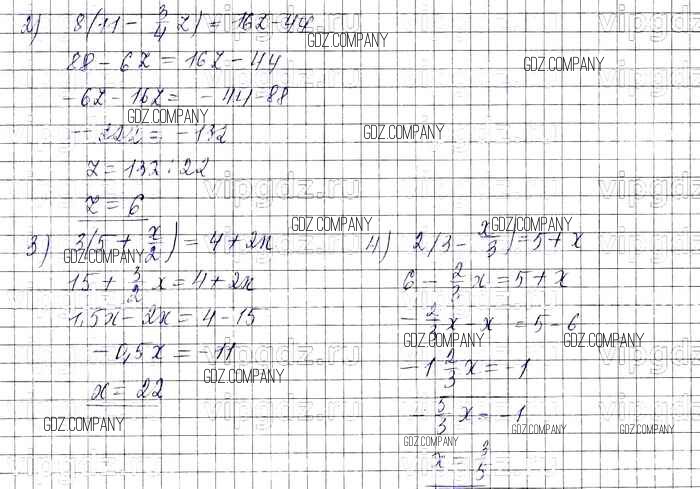 2) 8(11 - 3/4 z) = 16z - 44
88 - 6z = 16z - 44
-6z - 16z = -44 - 88
-22z = -132
z = 132 : 22
z = 6
3) 3(5 + x/2) = 4 + 2x
15 + 3/2 x = 4 + 2x
1,5x - 2x = 4 - 15
-0,5x = -11
x = 22
4) 2(3 - x/3) = 5 + x
6 - 2/3 x = 5 + x
-2/3 x - x = 5 - 6
-1 2/3 x = -1
-5/3 x = -1
x = 3/5
GDZ.COMPANY
GDZ.COMPANY
GDZ.COMPANY
GDZ.COMPANY
GDZ.COMPANY
GDZ.COMPANY
GDZ.COMPANY
GDZ.COMPANY
GDZ.COMPANY
GDZ.COMPANY
GDZ.COMPANY
GDZ.COMPANY
GDZ.COMPANY
GDZ.COMPANY
vipgdz.ru
vipgdz.ru
vipgdz.ru
vipgdz.ru